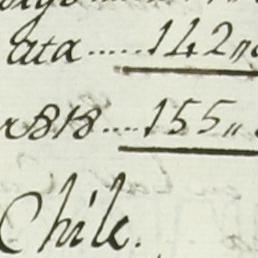 ata ..... 142,,
818 .... 155,,
Chile.